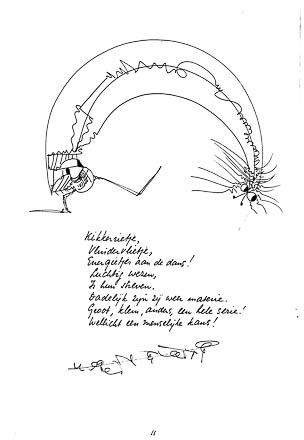 Kikkerietje,
Vlindervlietje,
Energietjes aan de dans!
Luchtig wezen,
Is hun streven.
Dadelijk zijn zij weer materie.
Groot, klein, anders, een hele serie!
Wellicht een menselijke kans!
11